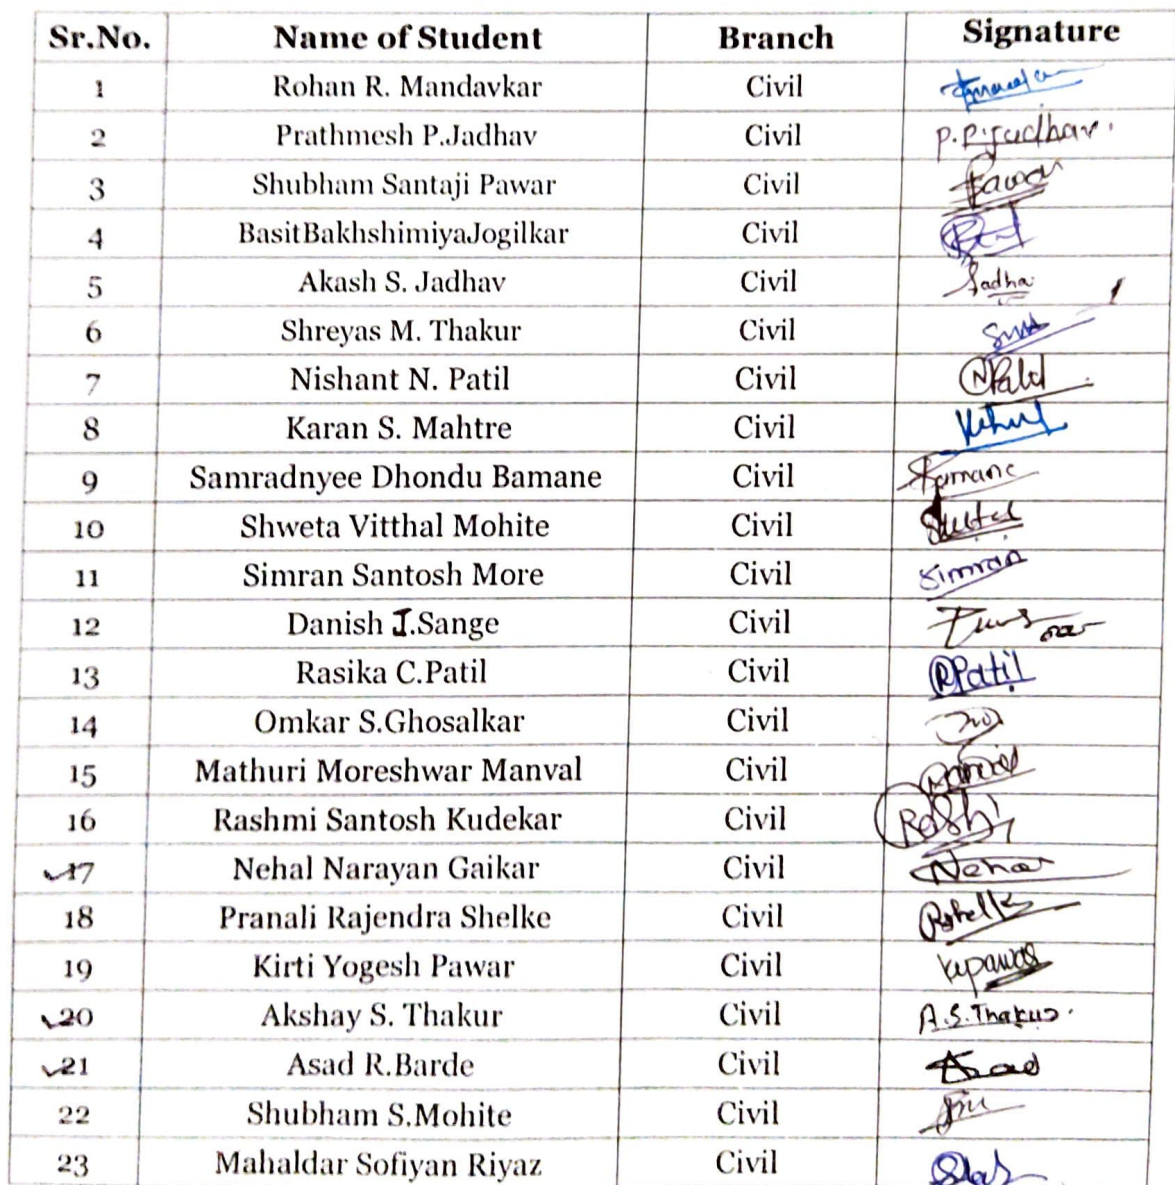 Sr.No. Name of Student Branch Signature
1 Rohan R. Mandavkar Civil
2 Prathmesh P.Jadhav Civil P.P.Jadhav.
3 Shubham Santaji Pawar Civil Pawar
4 BasitBakhshimiyaJogilkar Civil
5 Akash S. Jadhav Civil Jadhav
6 Shreyas M. Thakur Civil
7 Nishant N. Patil Civil
8 Karan S. Mahtre Civil
9 Samradnyee Dhondu Bamane Civil
10 Shweta Vitthal Mohite Civil
11 Simran Santosh More Civil Simran
12 Danish I.Sange Civil
13 Rasika C.Patil Civil RPatil
14 Omkar S.Ghosalkar Civil
15 Mathuri Moreshwar Manval Civil
16 Rashmi Santosh Kudekar Civil Rashmi
17 Nehal Narayan Gaikar Civil Nehal
18 Pranali Rajendra Shelke Civil
19 Kirti Yogesh Pawar Civil
20 Akshay S. Thakur Civil A.S.Thakur.
21 Asad R.Barde Civil Asad
22 Shubham S.Mohite Civil
23 Mahaldar Sofiyan Riyaz Civil